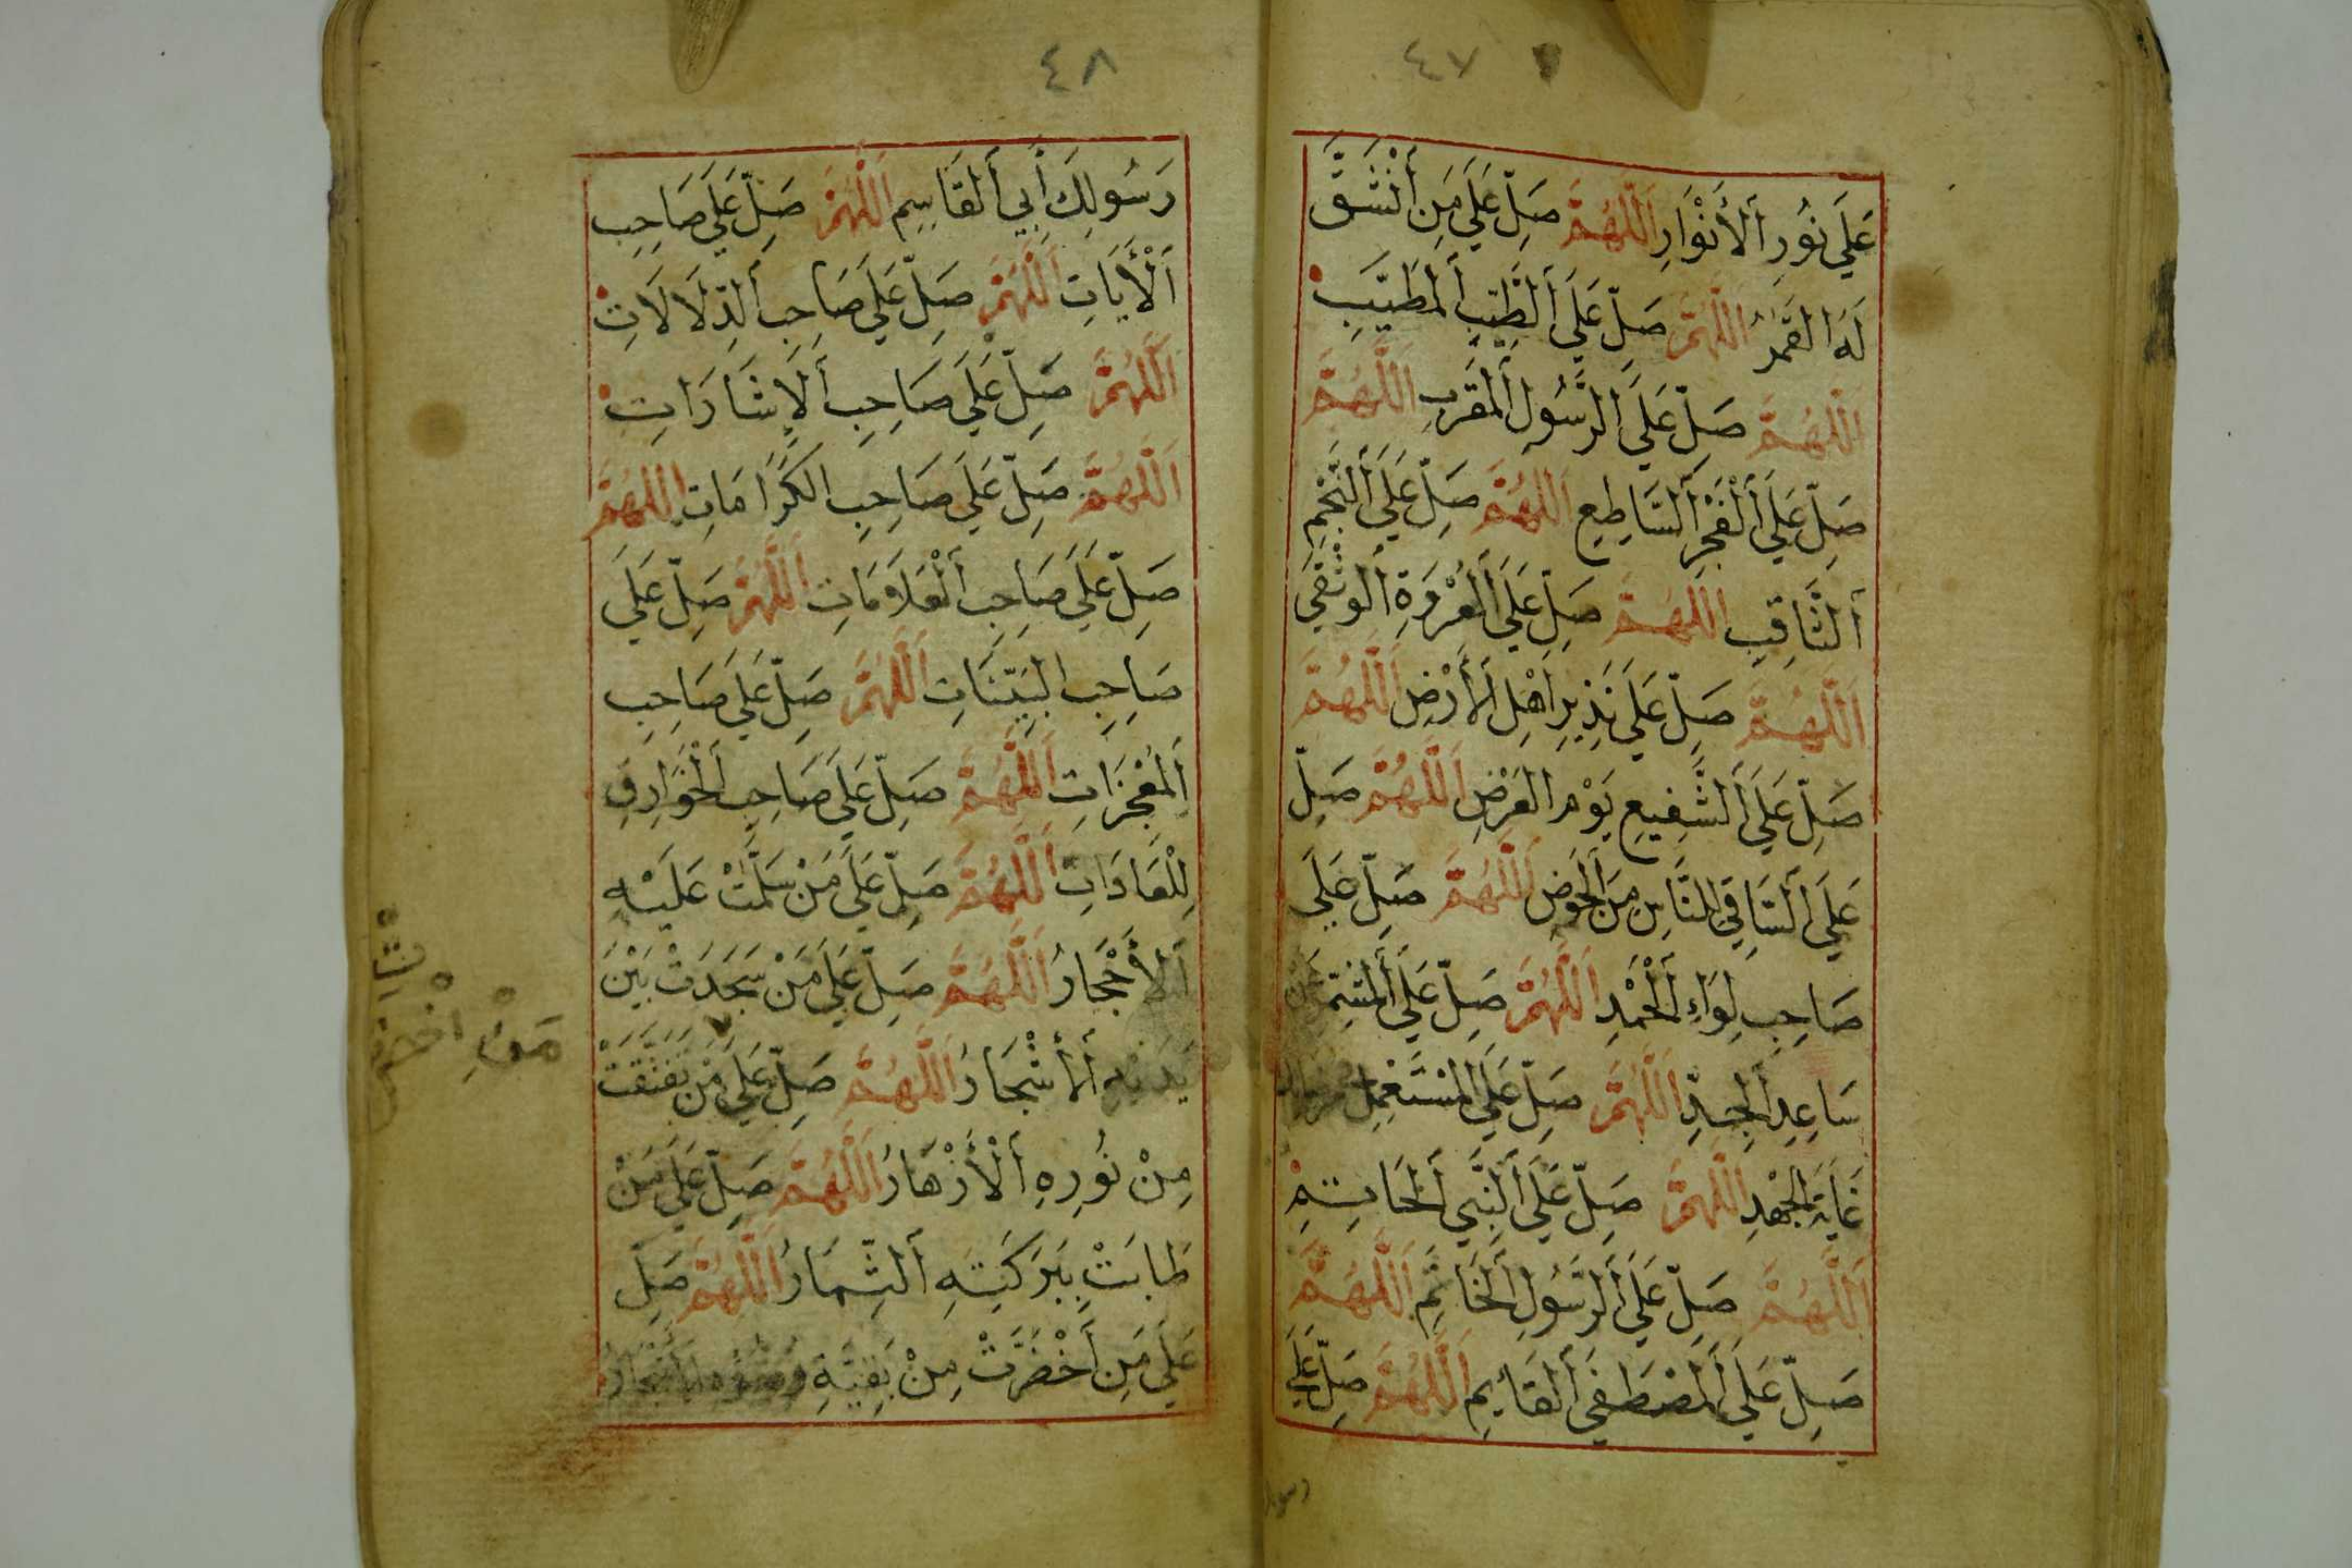 ٤٧
عَلَي نُورِ اَلْأَنْوَارِ اَللَّهُمَّ صَلِّ عَلَي مَنِ اَنْشَقَّ
لَهُ القَمَرُ اَللَّهُمَّ صَلِّ عَلَي اَلطَّيِّبِ اَلمُطَيَّبِ
اَللَّهُمَّ صَلِّ عَلَي اَلرَّسُولِ اَلْمُقَرَّبِ اَللَّهُمَّ
صَلِّ عَلَي اَلْفَجْرِ اَلسَّاطِعِ اَللَّهُمَّ صَلِّ عَلَي اَلنَّجْمِ
اَلثَّاقِبِ اَللَّهُمَّ صَلِّ عَلَي اَلعُرْوَةِ اَلوُثْقَي
اَللَّهُمَّ صَلِّ عَلَي نَذِيرِ اَهْلِ اَلأَرْضِ اَللَّهُمَّ
صَلِّ عَلَي اَلشَّفِيعِ يَوْمَ العَرْضِ اَللَّهُمَّ صَلِّ
عَلَي اَلسَّاقِي لِلنَّاسِ مِنَ اَلحَوْضِ اَللَّهُمَّ صَلِّ عَلَي
صَاحِبِ لِوَاءِ اَلْحَمْدِ اَللَّهُمَّ صَلِّ عَلَي اَلْمُشَمِّرِ عَنْ
سَاعِدِ اَلجِدِّ اَللَّهُمَّ صَلِّ عَلَي اَلْمُسْتَعْمِلِ
غَايَةَ اَلجُهْدِ اَللَّهُمَّ صَلِّ عَلَي اَلنَّبِي اَلْخَاتِمِ
اَللَّهُمَّ صَلِّ عَلَي اَلرَّسُولِ اَلْخَاتَمِ اَللَّهُمَّ
صَلِّ عَلَي اَلْمُصْطَفَي اَلقَايِمِ اَللَّهُمَّ صَلِّ عَلَي
٤٨
رَسُولِكَ أَبِي اَلقَاسِمِ اَللَّهُمَّ صَلِّ عَلَي صَاحِبِ
اَلْأَيَاتِ اَللَّهُمَّ صَلِّ عَلَي صَاحِبِ اَلدِّلَالَاتِ
اَللَّهُمَّ صَلِّ عَلَي صَاحِبِ اَلْاِشَارَاتِ
اَللَّهُمَّ صَلِّ عَلَي صَاحِبِ الكَرَامَاتِ اَللَّهُمَّ
صَلِّ عَلَي صَاحِبِ اَلْعَلَامَاتِ اَللَّهُمَّ صَلِّ عَلَي
صَاحِبِ البَيِّنَاتِ اَللَّهُمَّ صَلِّ عَلَي صَاحِبِ
اَلْمُعْجِزَاتِ اَللَّهُمَّ صَلِّ عَلَي صَاحِبِ اَلْخَوَارِقِ
لِلْعَادَاتِ اَللَّهُمَّ صَلِّ عَلَي مَنْ سَلَّمَتْ عَلَيْهِ
اَلأَحْجَارُ اَللَّهُمَّ صَلِّ عَلَي مَنْ سَجَدَتْ بَيْنَ
يَدَيْهِ اَلأَشْجَارُ اَللَّهُمَّ صَلِّ عَلَي مَنْ تَفَتَّقَتْ
مِنْ نُورِهِ اَلْأَزْهَارُ اَللَّهُمَّ صَلِّ عَلَي مَنْ
طَابَتْ بِبَرَكَتِهِ اَلثِّمَارُ اَللَّهُمَّ صَلِّ
عَلَي مَنِ اَخْضَرَّتْ مِنْ بَقِيَّةِ
مَنِ اخْضَرَّتْ